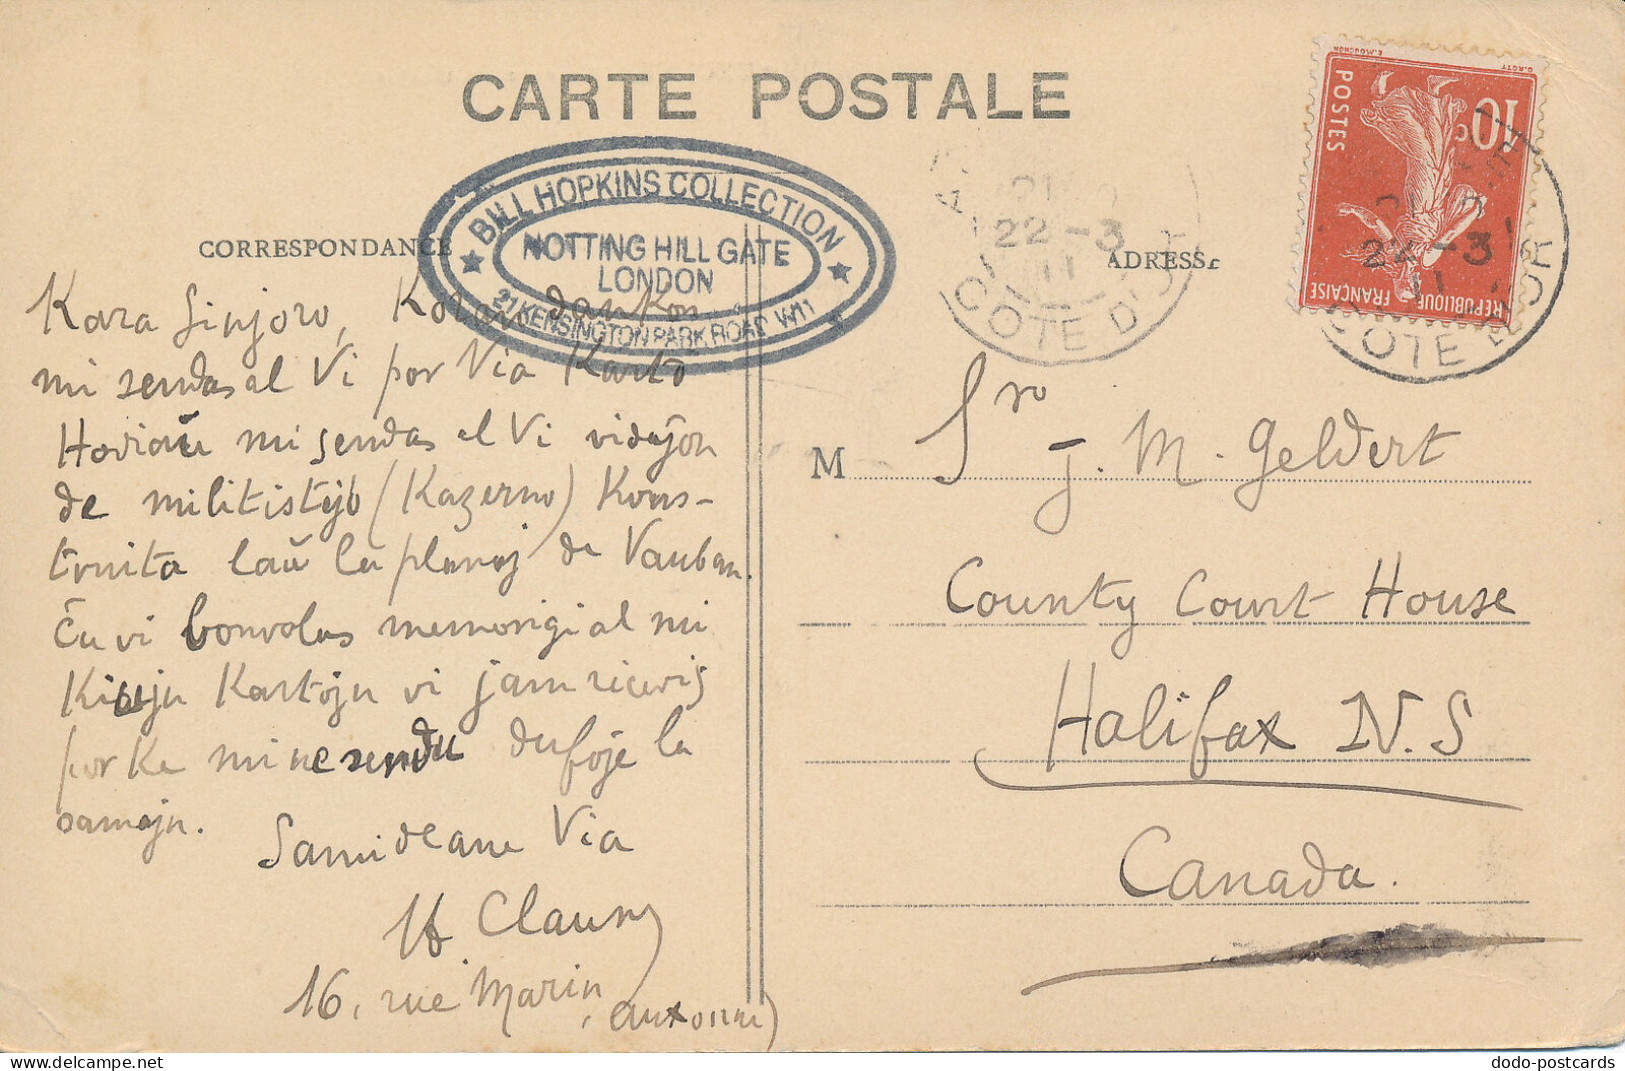 CARTE POSTALE
CORRESPONDANCE
BILL HOPKINS COLLECTION
NOTTING HILL GATE
LONDON
21 KENSINGTON PARK ROAD W11
Kara Sinjoro, Koran dankon
mi sendas al Vi por Via Karto
Hodiaŭ mi sendas al Vi vidajon
de militistejo (Kazerno) Kons-
truita laŭ la planoj de Vauban.
Ĉu vi bonvolas memorigi al mi
Kiujn Kartojn vi jam ricevis
por ke mi ne sendu dufoje la
samojn.
Samideane Via
H Clauny
16, rue Marin, Auxonne
ADRESSE
M Sro J. M. Geldert
County Court House
Halifax N.S
Canada.
22-3
11
COTE D'OR
10c
POSTES
REPUBLIQUE FRANÇAISE
O. ROTY
E. MOUCHON
22-3
11
COTE D'OR
dodo-postcards